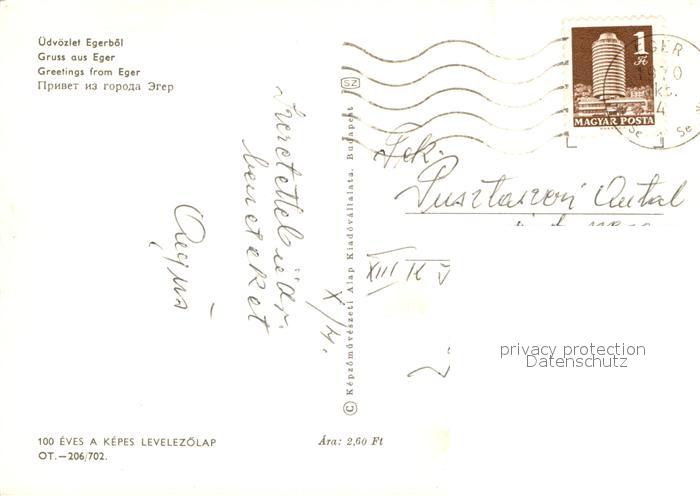 Üdvözlet Egerből
Gruss aus Eger
Greetings from Eger
Привет из города Эгер
1 Ft
MAGYAR POSTA
EGER
1970
okt.
4
SZ
© Képzőművészeti Alap Kiadóvállalata, Budapest
X/4.
Szeretettel
benneteket
Anyus
Fek.
Pusztaszeri Antal
XIII K V
privacy protection
Datenschutz
100 ÉVES A KÉPES LEVELEZŐLAP
OT.—206/702.
Ára: 2,60 Ft